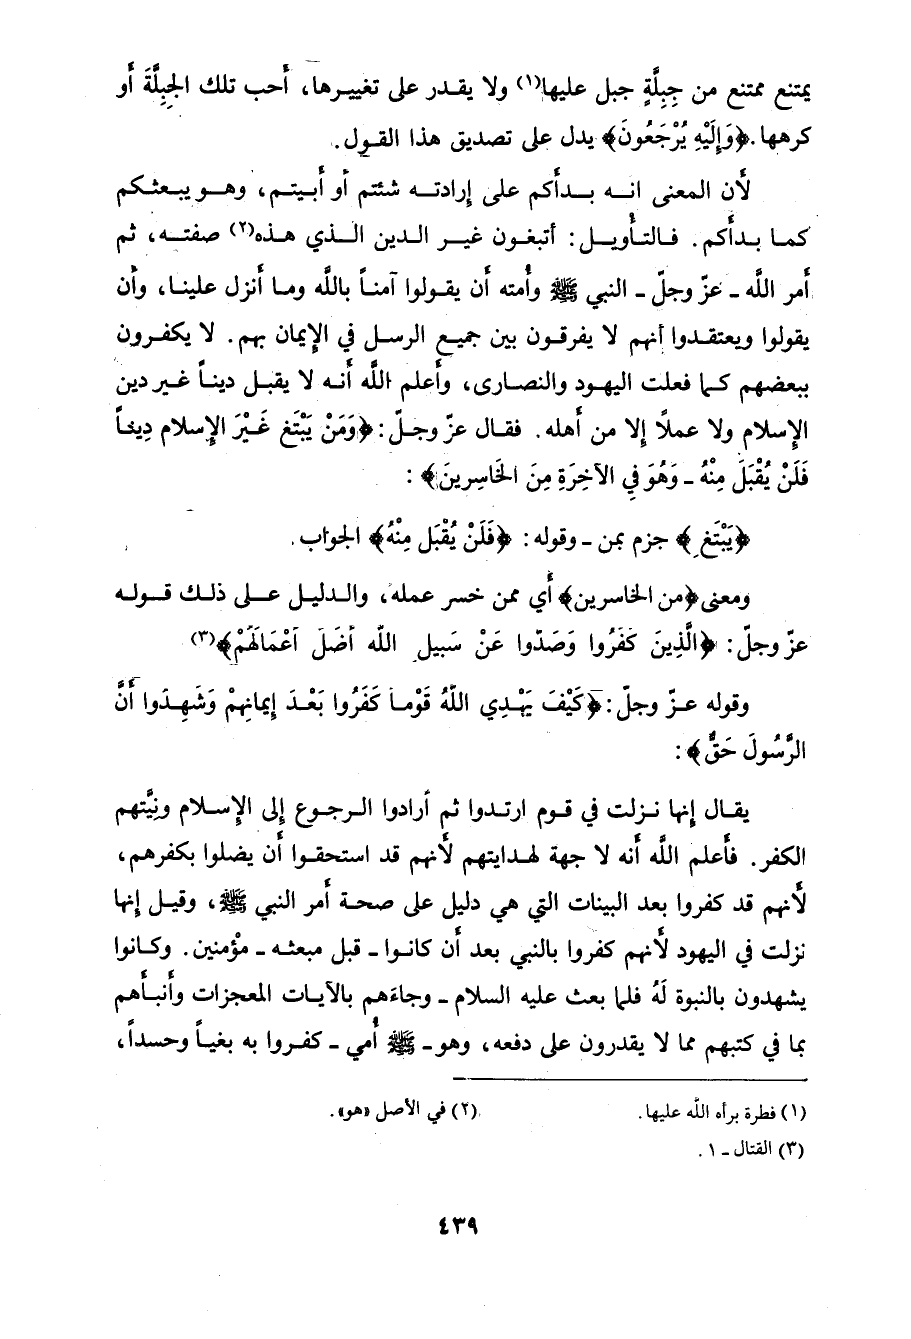 يمتنع ممتنع من جِبِلَّةٍ جبل عليها(١) ولا يقدر على تغييرها، أحب تلك الجِبِلَّةَ أو
كرهها. ﴿وَإِلَيْهِ يُرْجَعُونَ﴾ يدل على تصديق هذا القول.
لأن المعنى انه بدأكم على إرادته شئتم أو أبيتم، وهو يبعثكم
كما بدأكم. فالتأويل: أتبغون غير الدين الذي هذه(٢) صفته، ثم
أمر اللَّه ـ عزّ وجلّ ـ النبي ﷺ وأمته أن يقولوا آمناً باللَّه وما أنزل علينا، وأن
يقولوا ويعتقدوا أنهم لا يفرقون بين جميع الرسل في الإيمان بهم. لا يكفرون
ببعضهم كما فعلت اليهود والنصارى، وأعلم اللَّه أنه لا يقبل ديناً غير دين
الإسلام ولا عملًا إلا من أهله. فقال عزّ وجلّ: ﴿وَمَنْ يَبْتَغِ غَيْرَ الإِسلام دِيناً
فَلَنْ يُقْبَلَ مِنْهُ ـ وَهُوَ فِي الآخِرَةِ مِنَ الخَاسِرِينَ﴾ :
﴿يَبْتَغِ﴾ جزم بمن ـ وقوله: ﴿فَلَنْ يُقْبَل مِنْهُ﴾ الجواب.
ومعنى ﴿من الخاسرين﴾ أي ممن خسر عمله، والدليل على ذلك قوله
عزّ وجلّ: ﴿الَّذِينَ كَفَرُوا وَصَدّوا عَنْ سَبيلِ اللَّه أضَلَ أعْمَالَهُمْ﴾(٣)
وقوله عزّ وجلّ: ﴿كَيْفَ يَهْدِي اللَّهُ قَوْماً كَفَرُوا بَعْدَ إيمانِهِمْ وَشَهِدُوا أنَّ
الرَّسُولَ حَقٌّ﴾ :
يقال إنها نزلت في قوم ارتدوا ثم أرادوا الرجوع إلى الإسلام ونِيَّتهم
الكفر. فأعلم اللَّه أنه لا جهة لهدايتهم لأنهم قد استحقوا أن يضلوا بكفرهم،
لأنهم قد كفروا بعد البينات التي هي دليل على صحة أمر النبي ﷺ، وقيل إنها
نزلت في اليهود لأنهم كفروا بالنبي بعد أن كانوا ـ قبل مبعثه ـ مؤمنين. وكانوا
يشهدون بالنبوة لَهُ فلما بعث عليه السلام ـ وجاءهم بالآيات المعجزات وأنبأهم
بما في كتبهم مما لا يقدرون على دفعه، وهو ـ ﷺ أمي ـ كفروا به بغياً وحسداً،
(١) فطرة برأه اللَّه عليها. (٢) في الأصل «هو».
(٣) القتال ـ ١.
٤٣٩